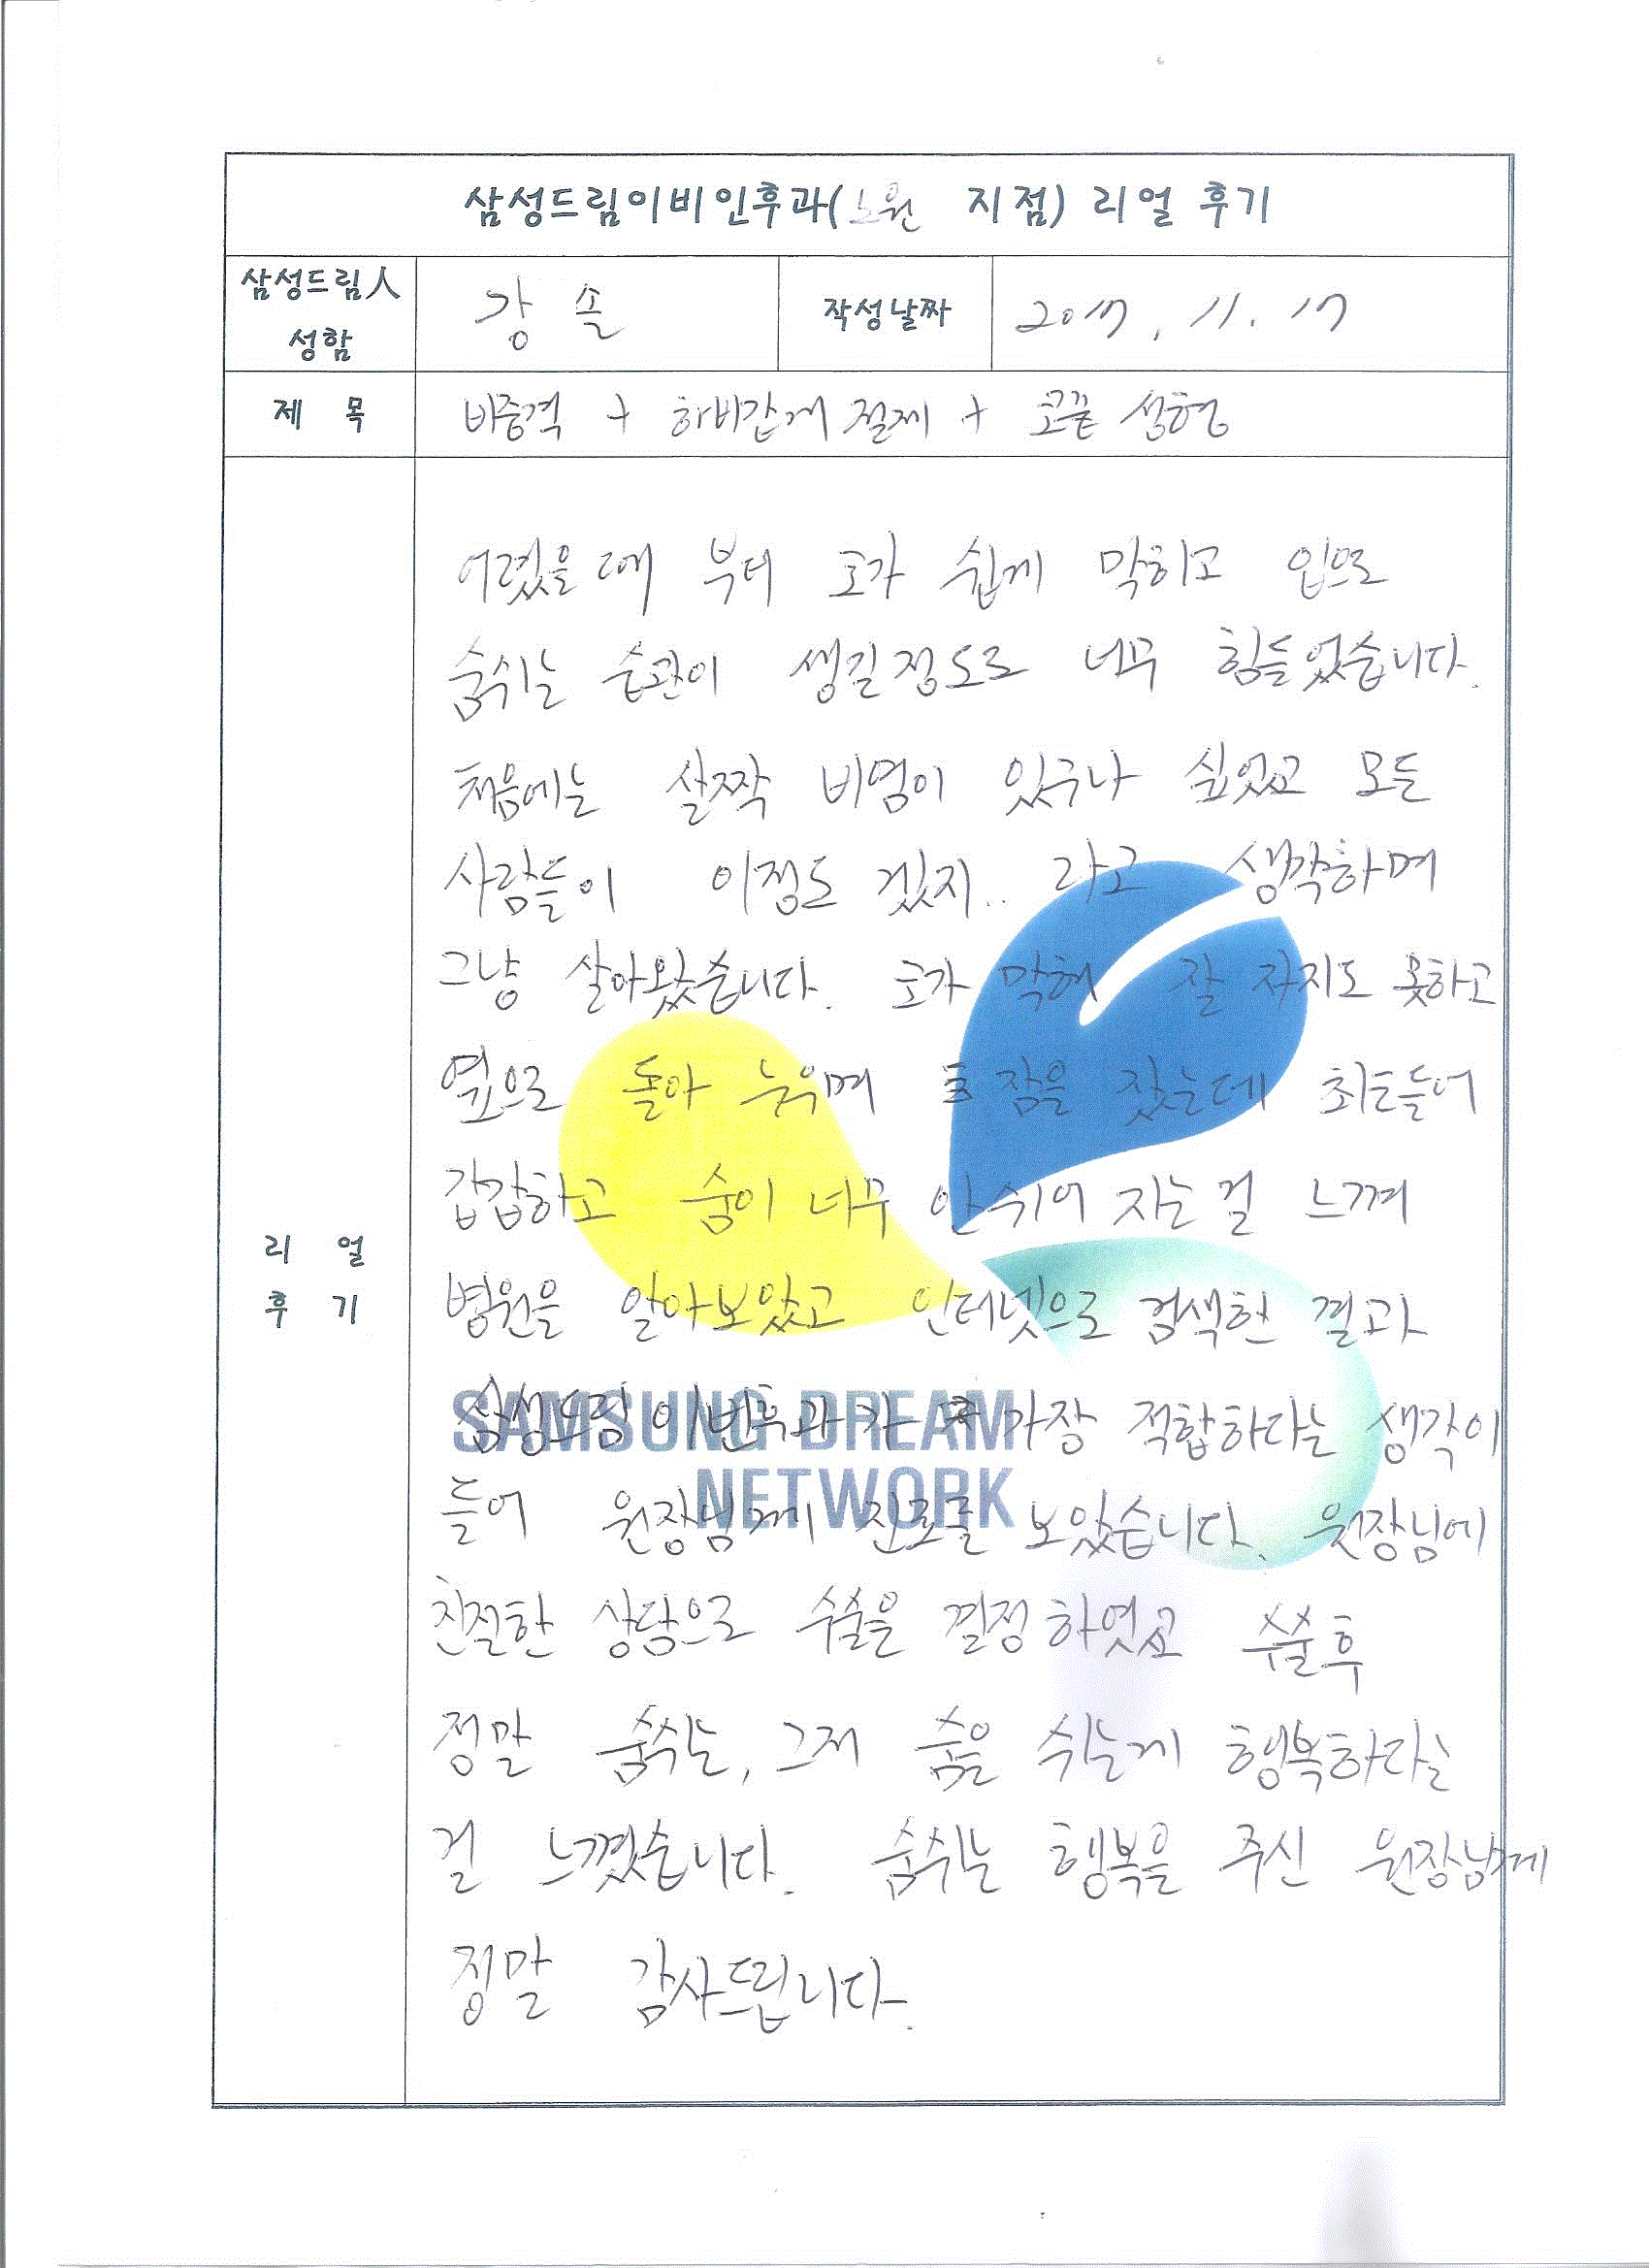 삼성드림이비인후과(노원 지점) 리얼 후기
삼성드림人 성함
강솔
작성날짜
2017. 11. 17
제 목
비중격 + 하비갑개 절제 + 코끝 성형
리 얼
후 기
어렸을 때 부터 코가 쉽게 막히고 입으로
숨쉬는 습관이 생길정도로 너무 힘들었습니다.
처음에는 살짝 비염이 있구나 싶었고 모든
사람들이 이정도 겠지.. 라고 생각하며
그냥 살아왔습니다. 코가 막혀 잘 자지도 못하고
옆으로 돌아 누우며 잠을 잤는데 최근들어
갑갑하고 숨이 너무 안 쉬어 지는 걸 느껴
병원을 알아보았고 인터넷으로 검색한 결과
삼성드림이비인후과가 가장 적합하다는 생각이
SAMSUNG DREAM
NETWORK
들어 원장님께 진료를 보았습니다. 원장님에
친절한 상담으로 수술을 결정하였고 수술후
정말 숨쉬는, 그저 숨을 쉬는게 행복하다는
걸 느꼈습니다. 숨쉬는 행복을 주신 원장님께
정말 감사드립니다.